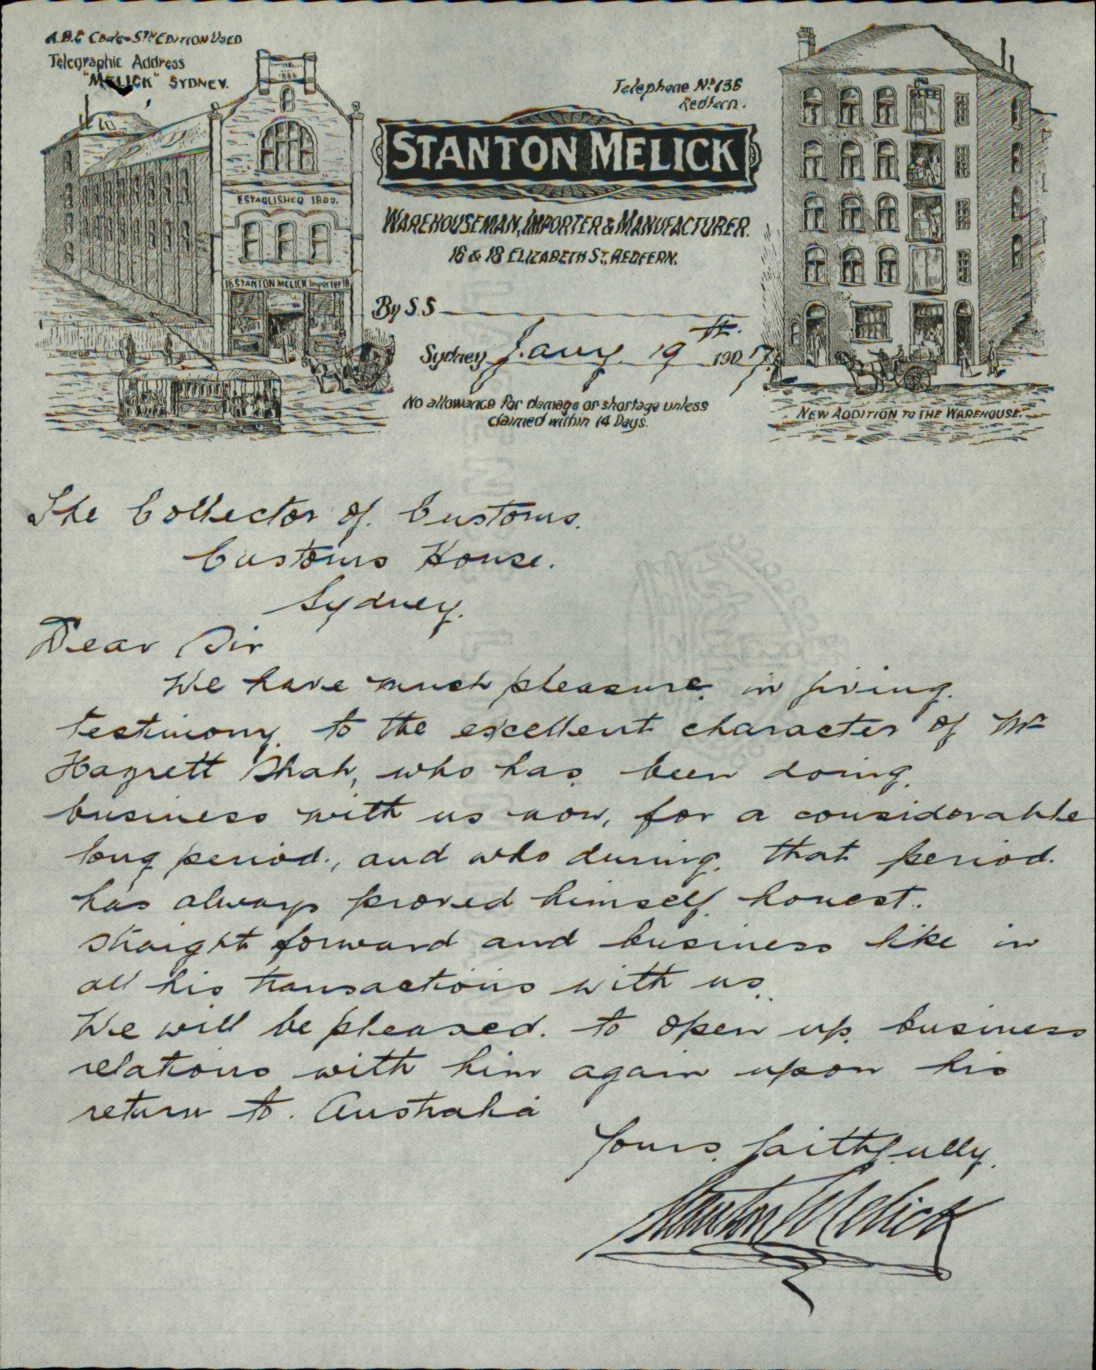 A.B.C Code 5TH EDITION USED
Telegraphic Address
"MELICK" SYDNEY.
Telephone No 135
Redfern.
STANTON MELICK
ESTABLISHED
WAREHOUSEMAN, IMPORTER & MANUFACTURER.
16 & 18 ELIZABETH ST, REDFERN.
16 STANTON MELICK Importer 18
By S.S
Sydney Jany. 19th. 1907.
No allowance for damage or shortage unless
claimed within 14 Days.
NEW ADDITION TO THE WAREHOUSE.
The Collector of. Customs.
Customs House.
Sydney.
Dear Sir
We have much pleasure in giving
testimony to the excellent character of Mr
Hazrett Shah, who has been doing
business with us now, for a considerable
long period., and who during. that period.
has always proved himself honest.
straight forward and business like in
all his transactions with us.
We will be pleased. to open up business
relations with him again upon his
return to. Australia
Yours. faithfully.
Stanton Melick